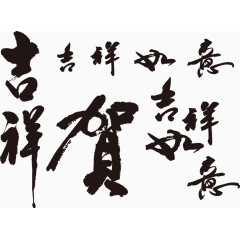 吉祥
吉祥如意
賀
吉祥如意